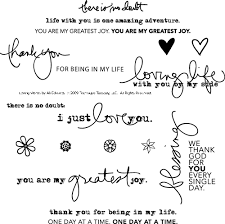 there is no doubt
life with you is one amazing adventure.
YOU ARE MY GREATEST JOY. YOU ARE MY GREATEST JOY.
thank you
FOR BEING IN MY LIFE
loving life
with you by my side
there is no doubt
i just love you.
blessing
WE
THANK
GOD
FOR
YOU
EVERY
SINGLE
DAY.
you are my greatest joy.
thank you for being in my life.
ONE DAY AT A TIME. ONE DAY AT A TIME.